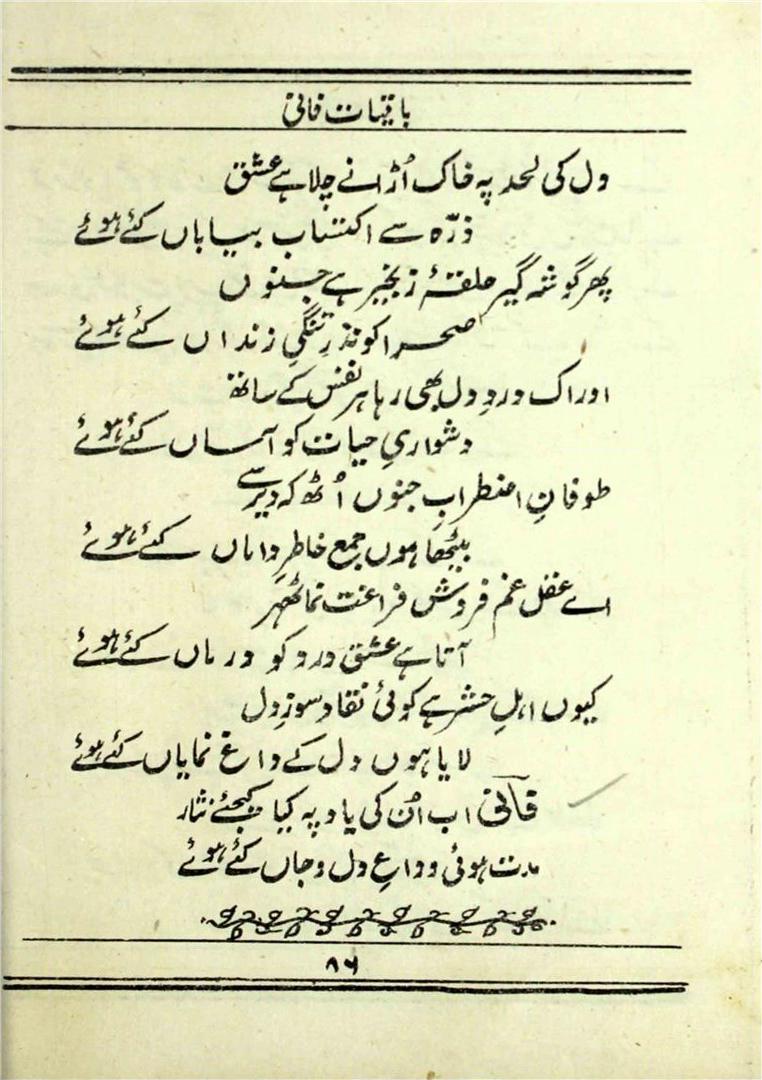 باقیات فانی
دل کی لحد پہ خاک اُڑانے چلا ہے عشق
ذرّہ سے اکتساب بیاباں کئے ہوئے
پھر گوشہ گیر حلقۂ زنجیر ہے جنوں
صحرا کو نذرِ تنگیِ زنداں کئے ہوئے
ادراک دردِ دل بھی رہا ہر نفس کے ساتھ
دشواریِ حیات کو آساں کئے ہوئے
طوفانِ اضطرابِ جنوں اُٹھ کہ دیر سے
بیٹھا ہوں جمع خاطرِ داماں کئے ہوئے
اے عقل غم فروش فراغت نما ٹھہر
آتا ہے عشق درد کو درماں کئے ہوئے
کیوں اہلِ حشر ہے کوئی نقاد سوزِ دل
لایا ہوں دل کے داغ نمایاں کئے ہوئے
فانی اب اُن کی یاد پہ کیا کیجئے نثار
مدت ہوئی وداعِ دل و جاں کئے ہوئے
۸۶